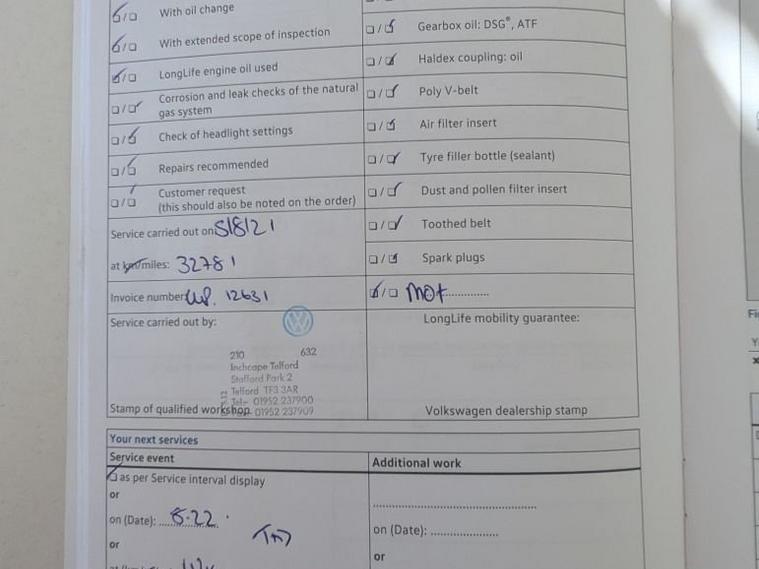 With oil change
With extended scope of inspection
LongLife engine oil used
Corrosion and leak checks of the natural
gas system
Check of headlight settings
Repairs recommended
Customer request
(this should also be noted on the order)
Service carried out on 5/8/21
at km/miles: 32781
Invoice number 12631
Service carried out by:
210 632
Inchcape Telford
Stafford Park 2
Telford TF3 3AR
Tel- 01952 237900
01952 237909
Stamp of qualified workshop
Gearbox oil: DSG®, ATF
Haldex coupling: oil
Poly V-belt
Air filter insert
Tyre filler bottle (sealant)
Dust and pollen filter insert
Toothed belt
Spark plugs
MOt
LongLife mobility guarantee:
Volkswagen dealership stamp
Your next services
Service event
as per Service interval display
or
on (Date): 8-22
or
Additional work
on (Date):
or